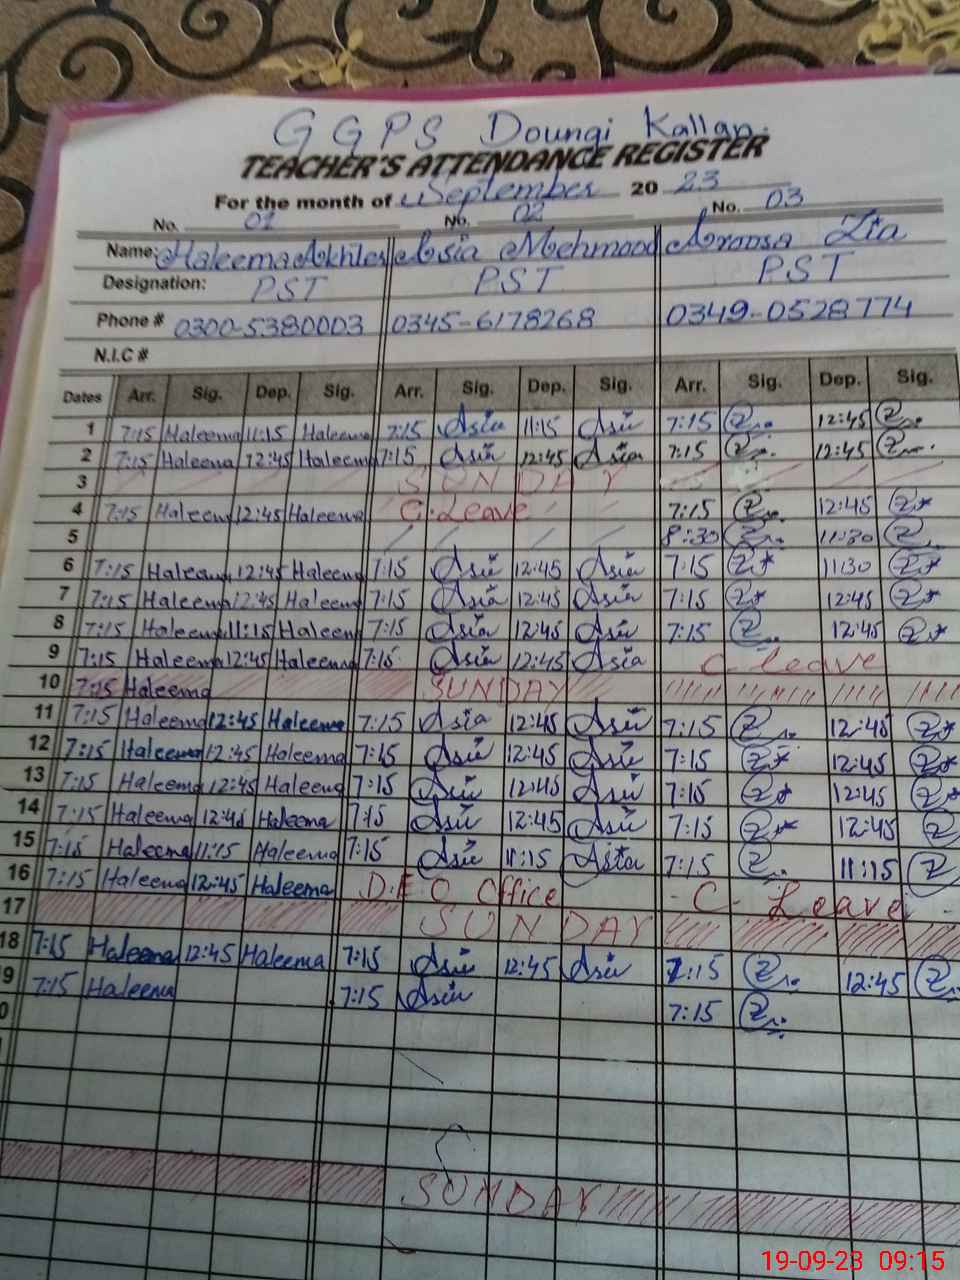 G G P S Doungi Kallan.
TEACHER'S ATTENDANCE REGISTER
For the month of September 20 23
No. 01 No. 02 No. 03
Name: Haleema Akhter Asia Mehmood Aroosa Zia
Designation: PST PST PST
Phone # 0300-5380003 0345-6178268 0349-0528774
N.I.C #
Dates Arr. Sig. Dep. Sig. Arr. Sig. Dep. Sig. Arr. Sig. Dep. Sig.
1 7:15 Haleema 11:15 Haleema 7:15 Asia 11:15 Asia 7:15 Z 12:45 Z
2 7:15 Haleema 12:45 Haleema 7:15 Asia 12:45 Asia 7:15 Z 12:45 Z
3 SUNDAY
4 7:15 Haleema 12:45 Haleema C. Leave 7:15 Z 12:45 Z
5 8:30 Z 11:30 Z
6 7:15 Haleema 12:45 Haleema 7:15 Asia 12:45 Asia 7:15 Z 11:30 Z
7 7:15 Haleema 12:45 Haleema 7:15 Asia 12:45 Asia 7:15 Z 12:45 Z
8 7:15 Haleema 11:15 Haleema 7:15 Asia 12:45 Asia 7:15 Z 12:45 Z
9 7:15 Haleema 12:45 Haleema 7:15 Asia 12:45 Asia C. Leave
10 7:15 Haleema SUNDAY
11 7:15 Haleema 12:45 Haleema 7:15 Asia 12:45 Asia 7:15 Z 12:45 Z
12 7:15 Haleema 12:45 Haleema 7:15 Asia 12:45 Asia 7:15 Z 12:45 Z
13 7:15 Haleema 12:45 Haleema 7:15 Asia 12:45 Asia 7:15 Z 12:45 Z
14 7:15 Haleema 12:45 Haleema 7:15 Asia 12:45 Asia 7:15 Z 12:45 Z
15 7:15 Haleema 11:15 Haleema 7:15 Asia 11:15 Asia 7:15 Z 11:15 Z
16 7:15 Haleema 12:45 Haleema D.E.O Office C. Leave
17 SUNDAY
18 7:15 Haleema 12:45 Haleema 7:15 Asia 12:45 Asia 7:15 Z 12:45 Z
9 7:15 Haleema 7:15 Asia 7:15 Z
0
SUNDAY
19-09-23 09:15